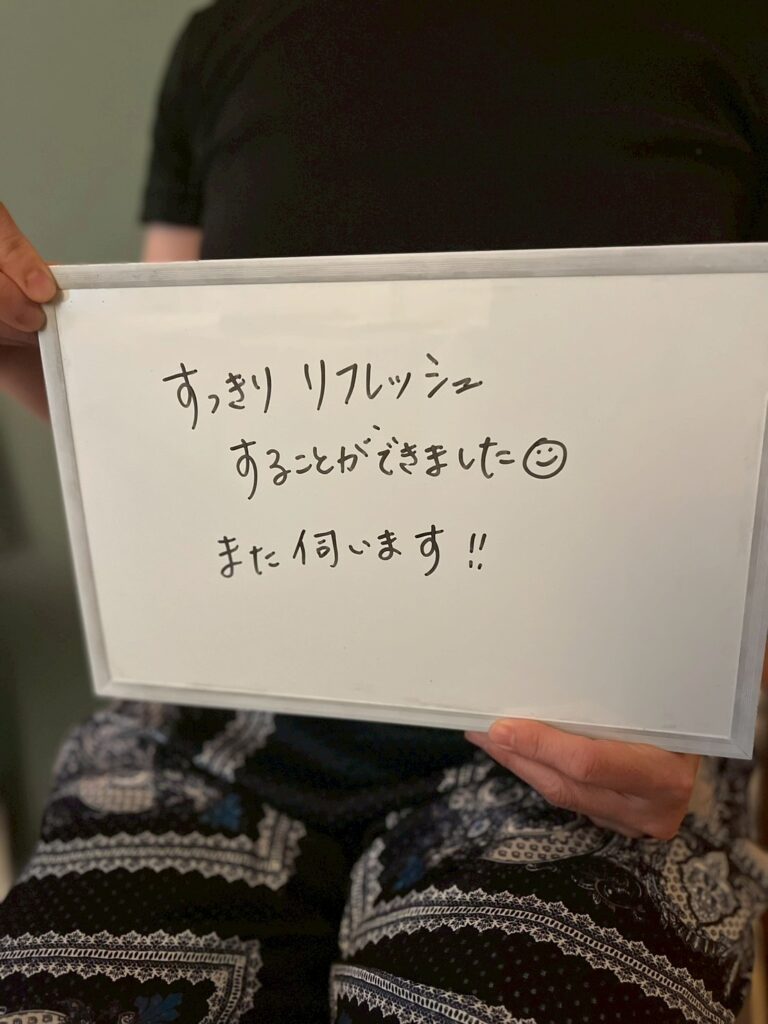 すっきり リフレッシュ
することができました☺
また伺います!!